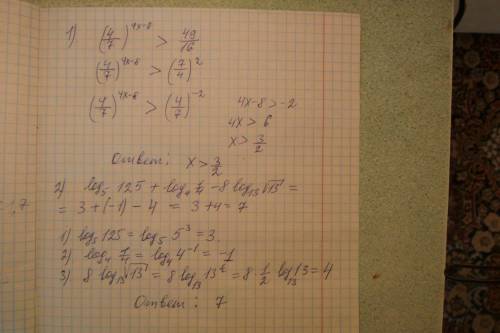 1) (4/7)^(4x-8) > 49/16
(4/7)^(4x-8) > (7/4)^2
(4/7)^(4x-8) > (4/7)^(-2)
4x-8 > -2
4x > 6
x > 3/2
Ответ: x > 3/2
2) log₅ 125 + log₄ 1/4 - 8 log₁₃ √13 =
= 3 + (-1) - 4 = 3+4 = 7
1) log₅ 125 = log₅ 5³ = 3
2) log₄ 1/4 = log₄ 4⁻¹ = -1
3) 8 log₁₃ √13 = 8 log₁₃ 13 = 8 · 1/2 log₁₃ 13 = 4
Ответ: 7
1,7